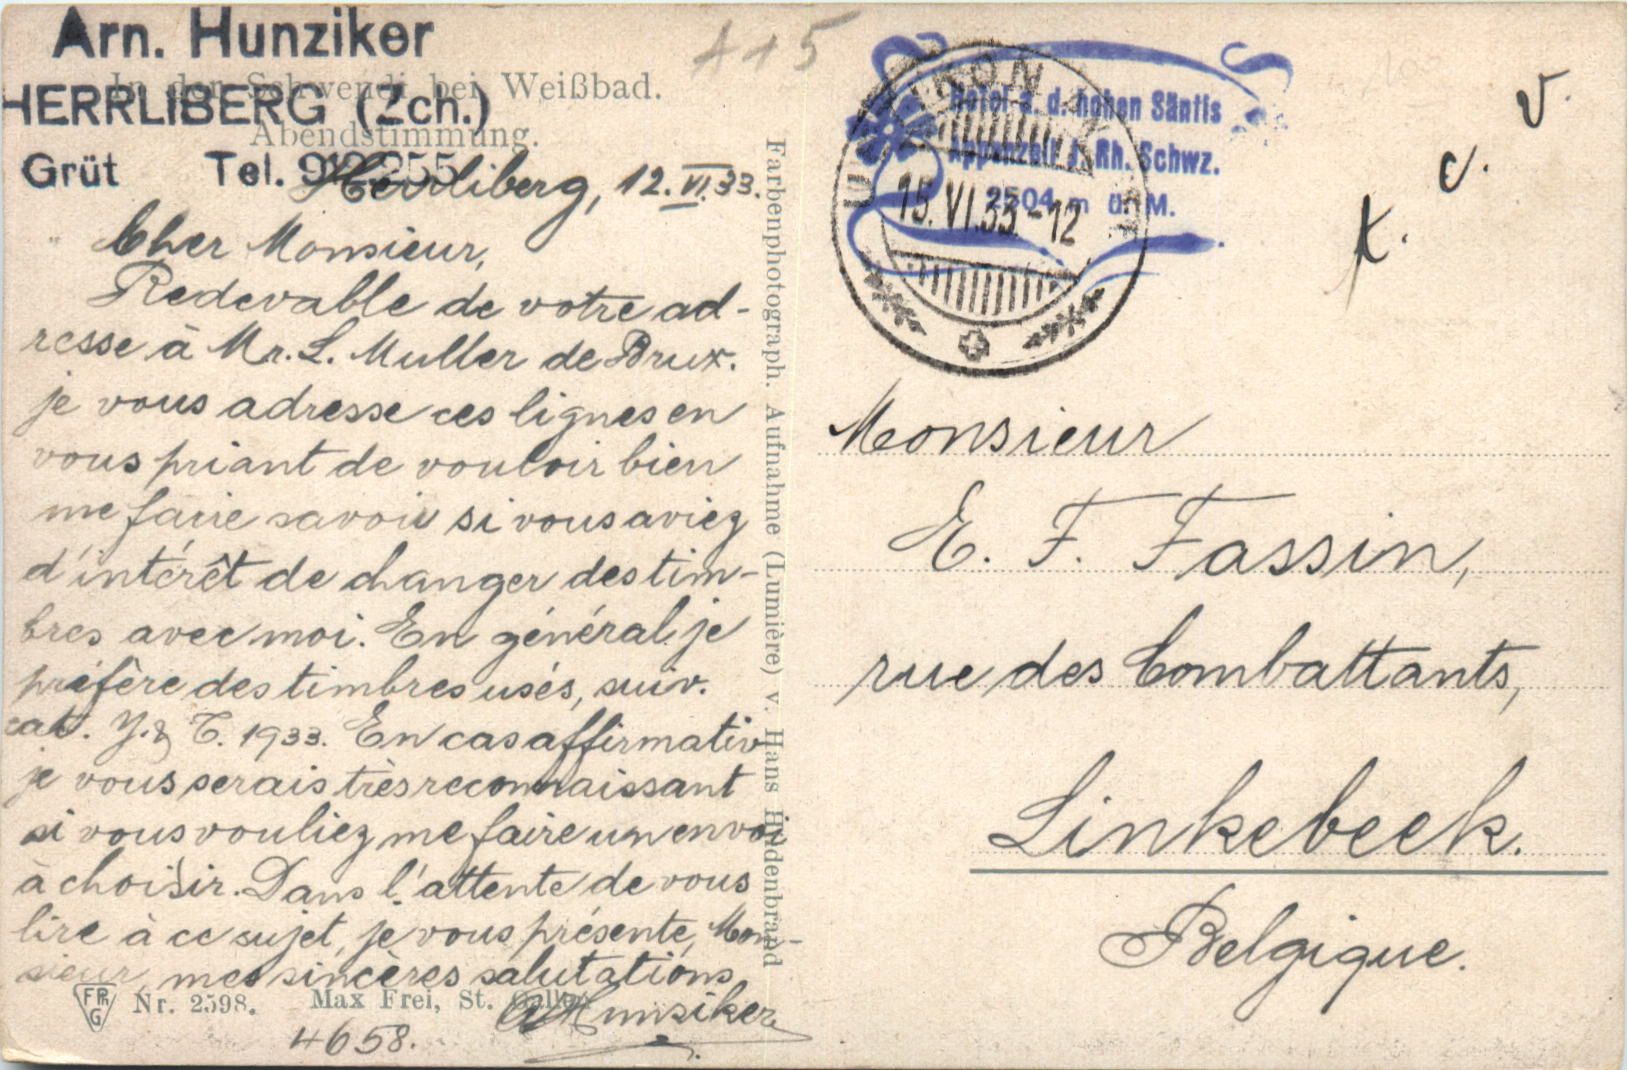 Arn. Hunziker
In der Schwendi bei Weißbad.
HERRLIBERG (Zch.)
Abendstimmung.
Grüt Tel. 912.255
Herrliberg, 12.VI.33.
Cher Monsieur,
Redevable de votre ad-
resse à Mr. L. Muller de Brux.
je vous adresse ces lignes en
vous priant de vouloir bien
me faire savoir si vous aviez
d'intérêt de changer des tim-
bres avec moi. En général je
préfère des timbres usés, suiv.
cat. Y. & T. 1933. En cas affirmativ
je vous serais très reconnaissant
si vous vouliez me faire un envoi
à choisir. Dans l'attente de vous
lire à ce sujet, je vous présente, Mon-
sieur, mes sincères salutations
AHunziker
FPG
Nr. 2598. Max Frei, St. Gallen
4658.
Farbenphotograph. Aufnahme (Lumière) v. Hans Hildenbrand
A + 5
Hotel a. d. hohen Säntis
Appenzell I. Rh. Schwz.
2504 m ü. M.
15.VI.33.-12
v.
c.
t.
Monsieur
E. F. Fassin,
rue des Combattants,
Linkebeek.
Belgique.